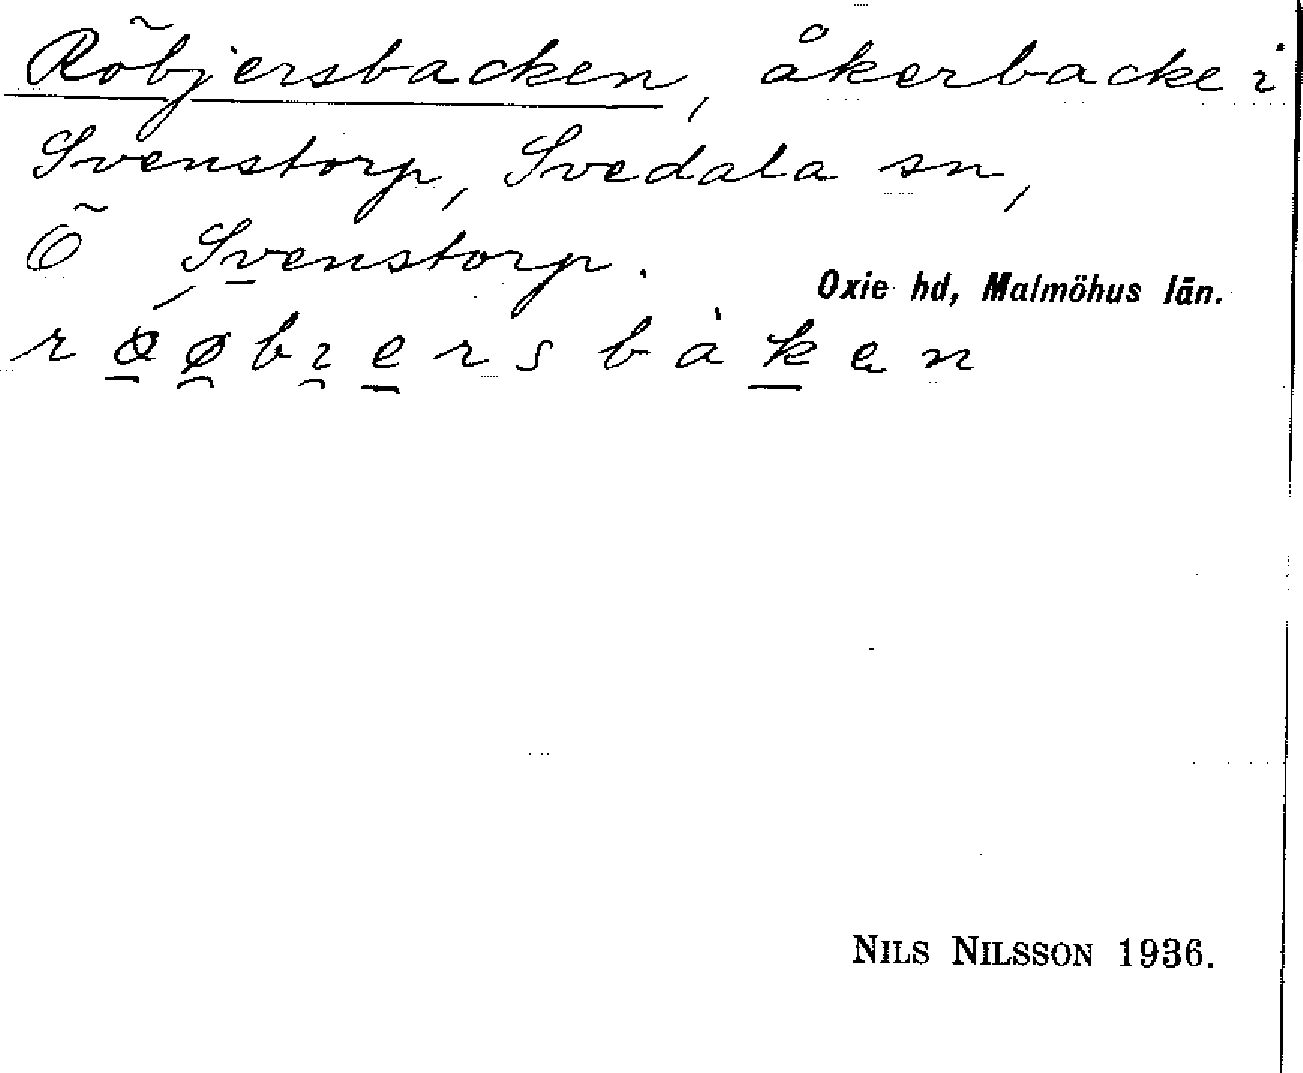 Röbjersbacken, åkerbacke i
Svenstorp, Svedala sn,
Ö Svenstorp.
Oxie hd, Malmöhus län.
NILS NILSSON 1936.